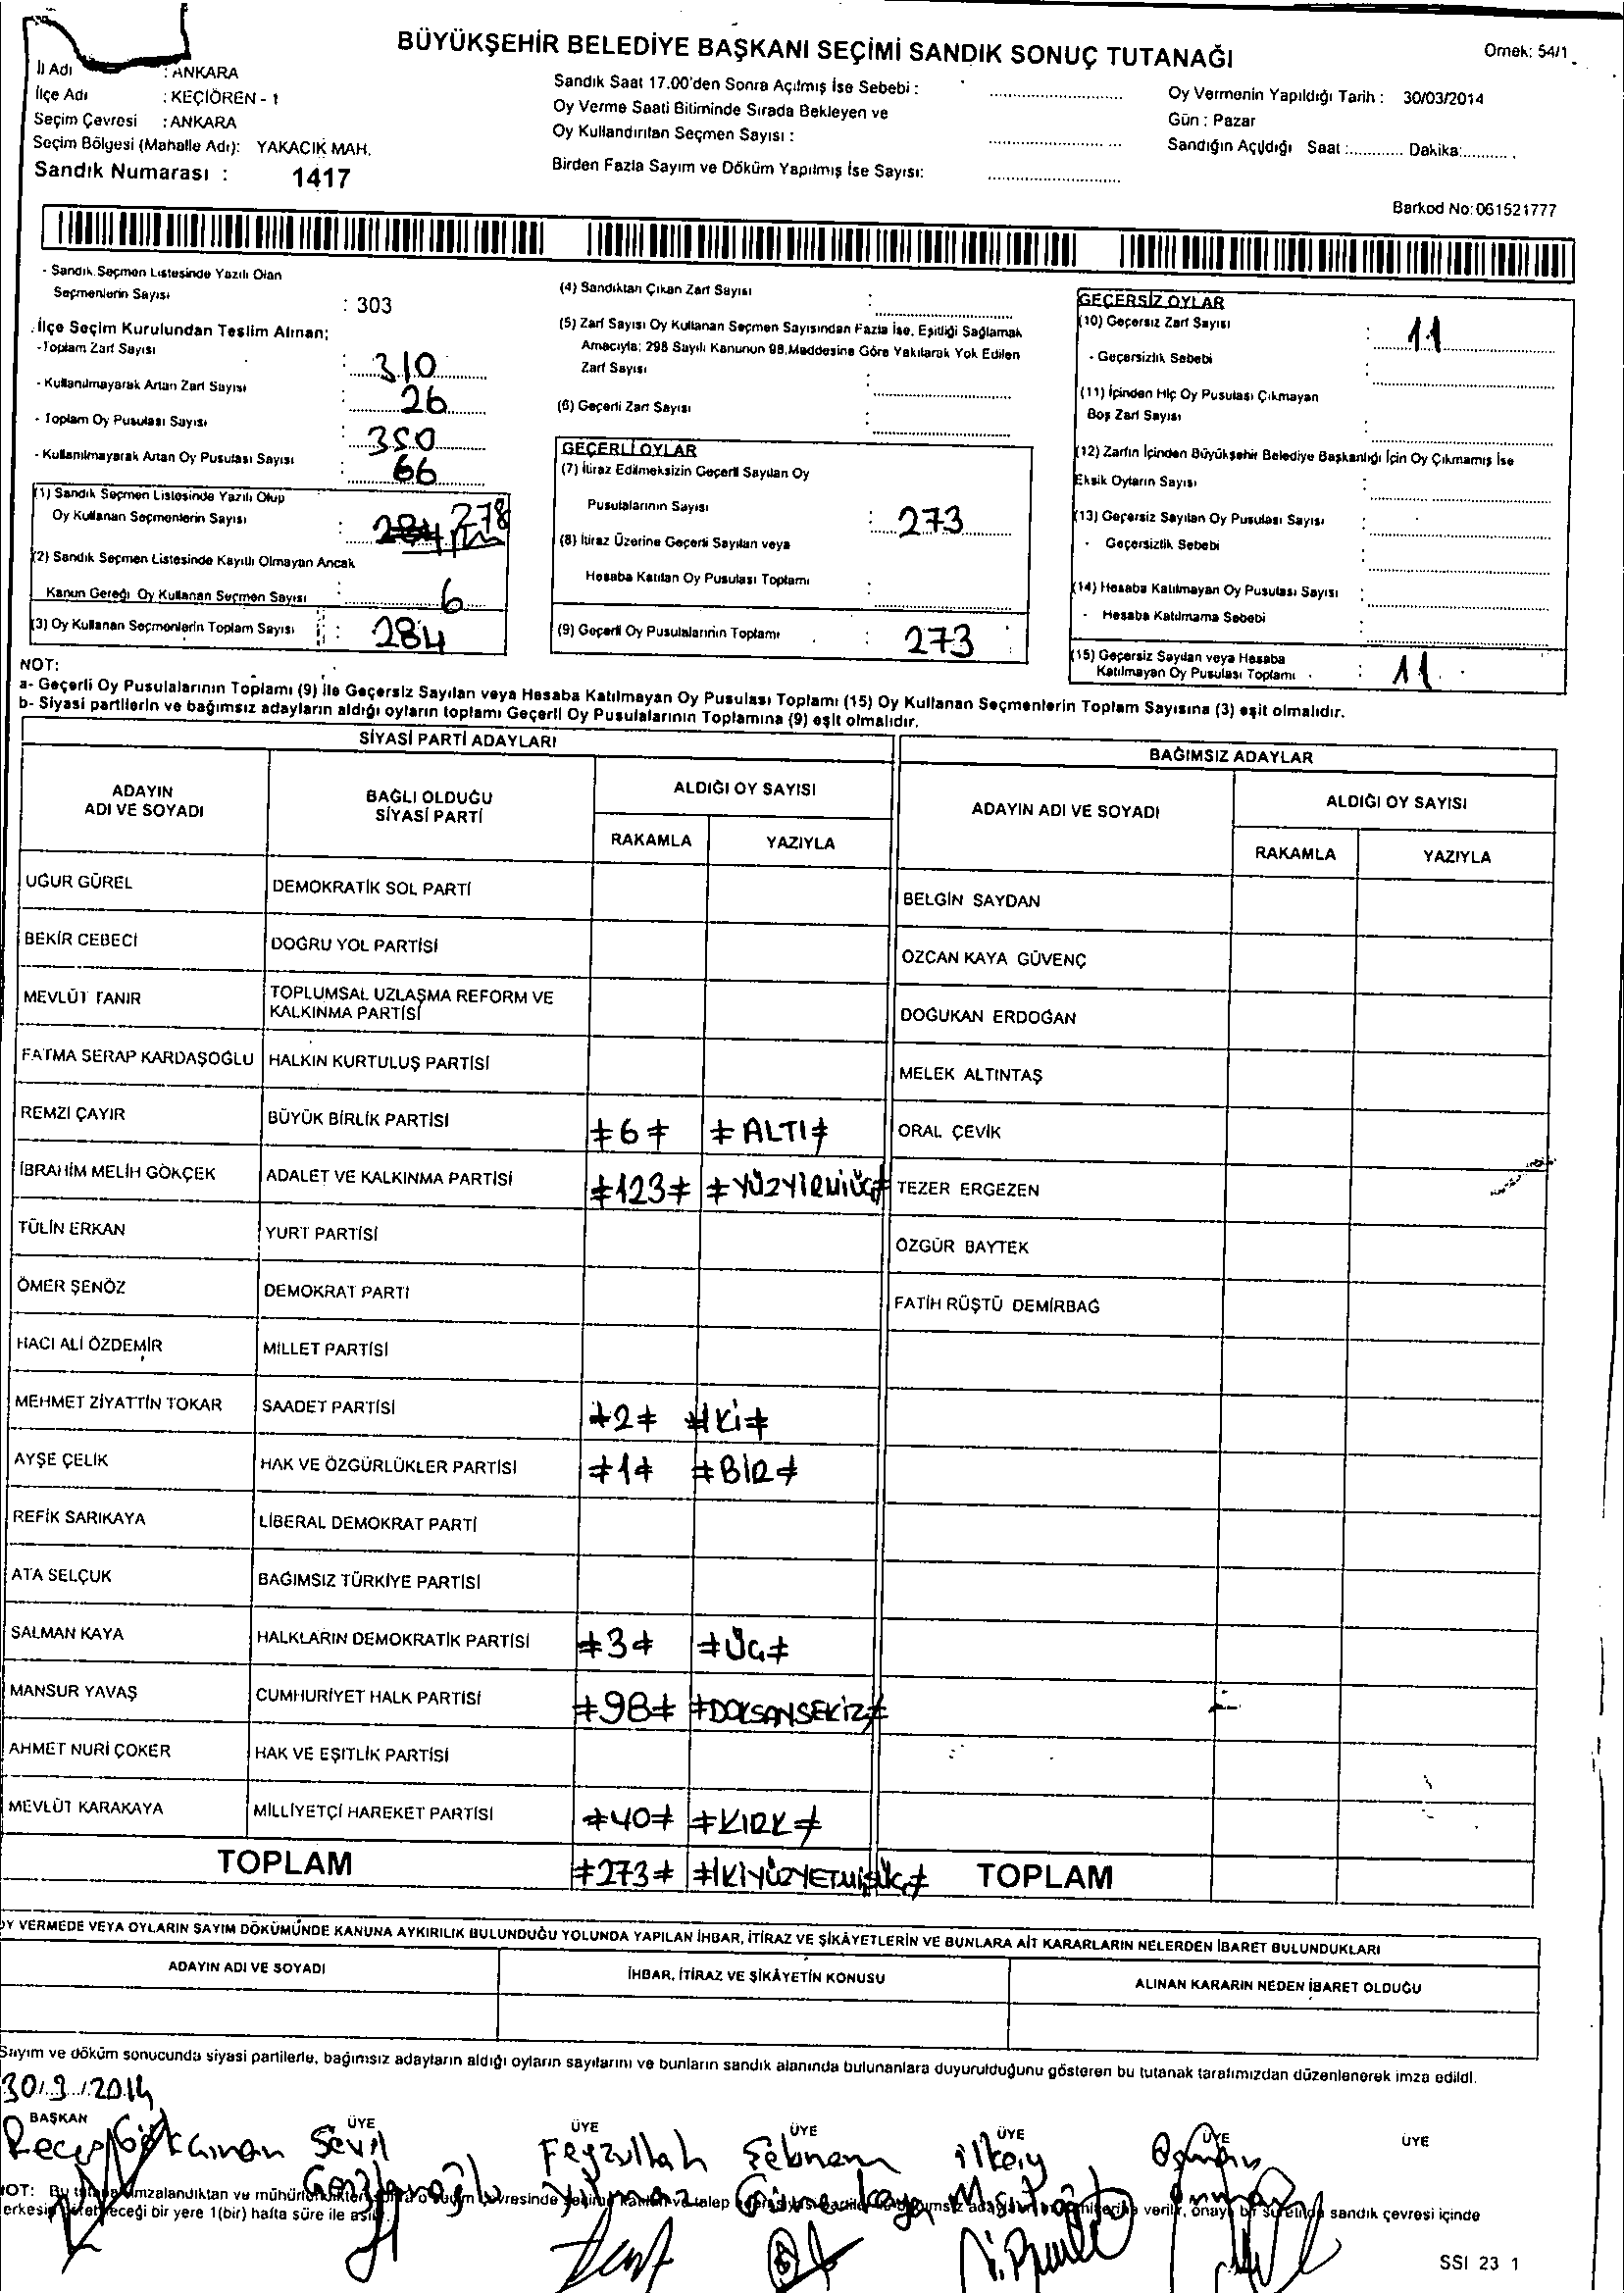 BÜYÜKŞEHİR BELEDİYE BAŞKANI SEÇİMİ SANDIK SONUÇ TUTANAĞI
Örnek: 54/1
İl Adı : ANKARA
İlçe Adı : KEÇİÖREN - 1
Seçim Çevresi : ANKARA
Seçim Bölgesi (Mahalle Adı): YAKACIK MAH.
Sandık Numarası : 1417
Sandık Saat 17.00'den Sonra Açılmış İse Sebebi :
Oy Verme Saati Bitiminde Sırada Bekleyen ve
Oy Kullandırılan Seçmen Sayısı :
Birden Fazla Sayım ve Döküm Yapılmış İse Sayısı:
Oy Vermenin Yapıldığı Tarih : 30/03/2014
Gün : Pazar
Sandığın Açıldığı Saat :............ Dakika:...........
Barkod No: 061521777
- Sandık Seçmen Listesinde Yazılı Olan
Seçmenlerin Sayısı : 303
İlçe Seçim Kurulundan Teslim Alınan;
-Toplam Zarf Sayısı : 310
- Kullanılmayarak Artan Zarf Sayısı : 26
- Toplam Oy Pusulası Sayısı : 350
- Kullanılmayarak Artan Oy Pusulası Sayısı : 66
(1) Sandık Seçmen Listesinde Yazılı Olup
Oy Kullanan Seçmenlerin Sayısı : 284 278
(2) Sandık Seçmen Listesinde Kayıtlı Olmayan Ancak
Kanun Gereği Oy Kullanan Seçmen Sayısı : 6
(3) Oy Kullanan Seçmenlerin Toplam Sayısı : 284
(4) Sandıktan Çıkan Zarf Sayısı :
(5) Zarf Sayısı Oy Kullanan Seçmen Sayısından Fazla İse, Eşitliği Sağlamak
Amacıyla; 298 Sayılı Kanunun 98.Maddesine Göre Yakılarak Yok Edilen
Zarf Sayısı :
(6) Geçerli Zarf Sayısı :
GEÇERLİ OYLAR
(7) İtiraz Edilmeksizin Geçerli Sayılan Oy
Pusulalarının Sayısı : 273
(8) İtiraz Üzerine Geçerli Sayılan veya
Hesaba Katılan Oy Pusulası Toplamı :
(9) Geçerli Oy Pusulalarının Toplamı : 273
GEÇERSİZ OYLAR
(10) Geçersiz Zarf Sayısı : 11
- Geçersizlik Sebebi :
(11) İçinden Hiç Oy Pusulası Çıkmayan
Boş Zarf Sayısı :
(12) Zarfın İçinden Büyükşehir Belediye Başkanlığı İçin Oy Çıkmamış İse
Eksik Oyların Sayısı :
(13) Geçersiz Sayılan Oy Pusulası Sayısı :
- Geçersizlik Sebebi :
(14) Hesaba Katılmayan Oy Pusulası Sayısı :
- Hesaba Katılmama Sebebi :
(15) Geçersiz Sayılan veya Hesaba
Katılmayan Oy Pusulası Toplamı : 11
NOT:
a- Geçerli Oy Pusulalarının Toplamı (9) ile Geçersiz Sayılan veya Hesaba Katılmayan Oy Pusulası Toplamı (15) Oy Kullanan Seçmenlerin Toplam Sayısına (3) eşit olmalıdır.
b- Siyasi partilerin ve bağımsız adayların aldığı oyların toplamı Geçerli Oy Pusulalarının Toplamına (9) eşit olmalıdır.
SİYASİ PARTİ ADAYLARI
ADAYIN ADI VE SOYADI
BAĞLI OLDUĞU SİYASİ PARTİ
ALDIĞI OY SAYISI
RAKAMLA YAZIYLA
BAĞIMSIZ ADAYLAR
ADAYIN ADI VE SOYADI
ALDIĞI OY SAYISI
RAKAMLA YAZIYLA
UĞUR GÜREL DEMOKRATİK SOL PARTİ BELGİN SAYDAN
BEKİR CEBECİ DOĞRU YOL PARTİSİ ÖZCAN KAYA GÜVENÇ
MEVLÜT TANIR TOPLUMSAL UZLAŞMA REFORM VE KALKINMA PARTİSİ DOĞUKAN ERDOĞAN
FATMA SERAP KARDAŞOĞLU HALKIN KURTULUŞ PARTİSİ MELEK ALTINTAŞ
REMZİ ÇAYIR BÜYÜK BİRLİK PARTİSİ ≠6≠ ≠ALTI≠ ORAL ÇEVİK
İBRAHİM MELİH GÖKÇEK ADALET VE KALKINMA PARTİSİ ≠123≠ ≠YÜZYİRMİÜÇ≠ TEZER ERGEZEN
TÜLİN ERKAN YURT PARTİSİ ÖZGÜR BAYTEK
ÖMER ŞENÖZ DEMOKRAT PARTİ FATİH RÜŞTÜ DEMİRBAĞ
HACI ALİ ÖZDEMİR MİLLET PARTİSİ
MEHMET ZİYATTİN TOKAR SAADET PARTİSİ ≠2≠ ≠İKİ≠
AYŞE ÇELİK HAK VE ÖZGÜRLÜKLER PARTİSİ ≠1≠ ≠BİR≠
REFİK SARIKAYA LİBERAL DEMOKRAT PARTİ
ATA SELÇUK BAĞIMSIZ TÜRKİYE PARTİSİ
SALMAN KAYA HALKLARIN DEMOKRATİK PARTİSİ ≠3≠ ≠ÜÇ≠
MANSUR YAVAŞ CUMHURİYET HALK PARTİSİ ≠98≠ ≠DOKSANSEKİZ≠
AHMET NURİ ÇOKER HAK VE EŞİTLİK PARTİSİ
MEVLÜT KARAKAYA MİLLİYETÇİ HAREKET PARTİSİ ≠40≠ ≠KIRK≠
TOPLAM ≠273≠ ≠İKİYÜZYETMİŞÜÇ≠ TOPLAM
OY VERMEDE VEYA OYLARIN SAYIM DÖKÜMÜNDE KANUNA AYKIRILIK BULUNDUĞU YOLUNDA YAPILAN İHBAR, İTİRAZ VE ŞİKÂYETLERİN VE BUNLARA AİT KARARLARIN NELERDEN İBARET BULUNDUKLARI
ADAYIN ADI VE SOYADI İHBAR, İTİRAZ VE ŞİKÂYETİN KONUSU ALINAN KARARIN NEDEN İBARET OLDUĞU
Sayım ve döküm sonucunda siyasi partilerle, bağımsız adayların aldığı oyların sayılarını ve bunların sandık alanında bulunanlara duyurulduğunu gösteren bu tutanak tarafımızdan düzenlenerek imza edildi.
30/3/2014
BAŞKAN ÜYE ÜYE ÜYE ÜYE ÜYE ÜYE
Recep Sevil Feyzullah Şebnem İlkay Osman
Yılmaz Güneşkaya
NOT: Bu imzalandıktan ve mühürlendikten o seçim çevresinde ve talep verilir, onaylı bir suretinde sandık çevresi içinde
herkesin görebileceği bir yere 1(bir) hafta süre ile asılır.
SSI 23 1